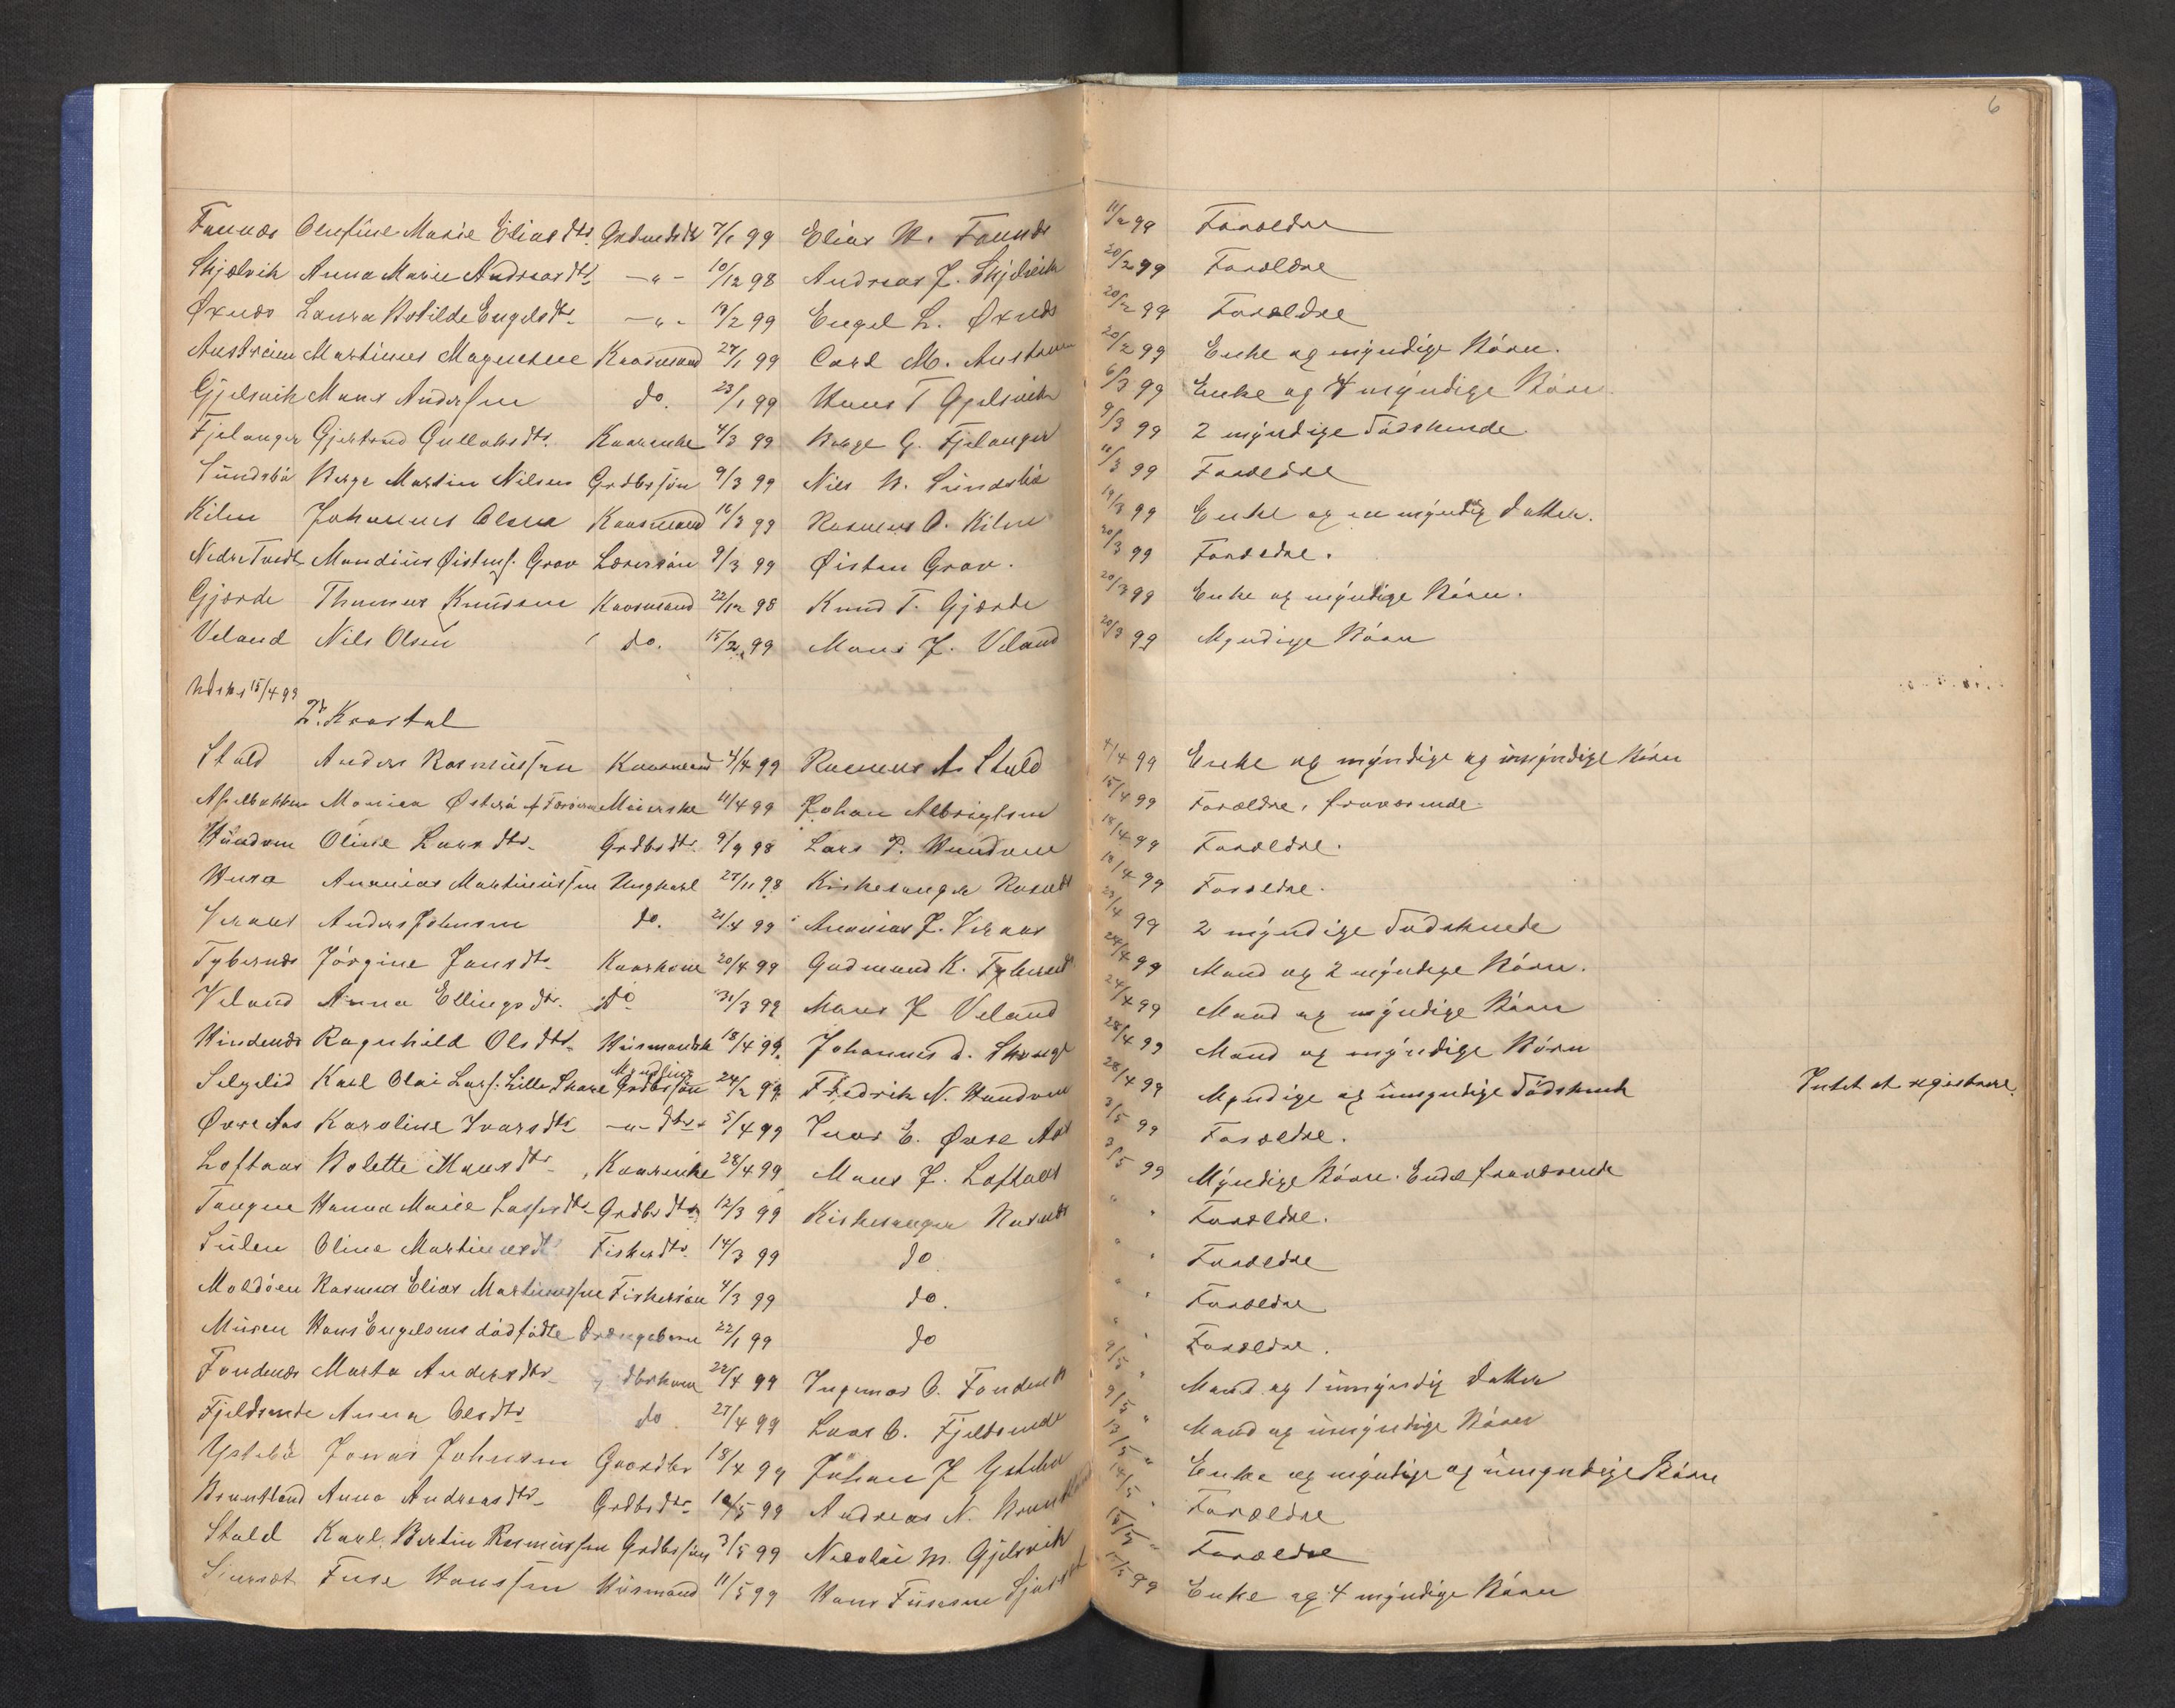 6
Faunæs Olufine Marie Eliasdtr. 7/1 99 Elias H. Faunæs 11/2 99 Forældre
Skjælvik Anna Marie Andreasdtr. -"- 10/12 98 Andreas J. Skjelvik 20/2 99 Forældre
Øxnæs Laura Botilde Engelsdtr. -"- 19/2 99 Engel L. Øxnæs 20/2 99 Forældre
Austreim Martinus Magnesne Kaarmand 27/1 99 Carl M. Austreim 20/2 99 Enke og myndige Børn.
Gjelsvik Mons Andersen do. 23/1 99 Hans T Gjelsvik 6/3 99 Enke og 4 myndige Børn
Fjelanger Gjertrud Gullaksdtr. Kaarenke 4/3 99 Børge G. Fjelanger 9/3 99 2 myndige Södskende
Sundsbø Børge Martin Nilsen Grdbrsön 9/3 99 Nils B. Sundsbø 11/3 99 Forældre
Kilen Johannes Olsen Kaarmand 16/3 99 Rasmus O. Kilen 19/3 99 Enke og en myndig datter.
Nedre Tvedt Mandius Øistens. Grov Lærersön 9/3 99 Øisten Grov. 20/3 99 Forældre.
Gjærde Thomas Knudsen Kaarmand 22/12 98 Knud T. Gjærde 20/3 99 Enke og myndige Börn.
Veland Nils Olsen do. 15/2 99 Mons J. Veland 20/3 99 Myndige Börn
15/4 99
2. Kvartal
Stald Anders Rasmussen Kaarmand 4/4 99 Rasmus A. Stald 4/4 99 Enke og myndige og umyndige Börn
Monica Østerø Meierske 11/4 99 Johan Albrigtsen 15/4 99 Forældre, fraværende
Hundven Oline Larsdtr. Grdbrdtr. 9/9 98 Lars P. Hundven 18/4 99 Forældre.
Husa Ananias Martinussen Ungkarl 27/11 98 Kirkesanger 18/4 99 Forældre.
Anders Johnsen do. 21/4 99 Ananias J. 23/4 99 2 myndige Södskende
Tybernæs Jörgine Jansdtr. Kaarkone 20/4 99 Gudmund K. Tybernæs 24/4 99 Mand og 2 myndige Börn.
Veland Anna Ellingsdtr. do 31/3 99 Mons J Veland 24/4 99 Mand og myndige Börn
Hindenæs Ragnhild Olsdtr. Husmandsk 18/4 99 Johannes A. Skauge 28/4 99 Mand og myndige Börn
Selgelid Karl Olai Lars. Lille Skare Myndling Grdbrsön 24/2 99 Fredrik N. Hundven 28/4 99 Myndige og umyndige Södskende Intet at registrere
Øvre Aas Karoline Ivarsdtr. -"- dtr. 5/4 99 Ivar E. Øvre Aas 3/5 99 Forældre.
Loftaas Bolette Monsdtr. Kaarenke 28/4 99 Mons J. Loftaas 3/5 99 Myndige Börn. Endel fraværende
Tangen Hanna Marie Lassesdtr. Grdbrdtr. 12/3 99 Kirkesanger " " Forældre.
Sulen Oline Martinusdt Fiskerdtr. 14/3 99 do " " Forældre
Moldöen Rasmus Elias Martinussen Fiskersön 4/3 99 do. " " Forældre
Muren Hans Engelsens dödfödte Drengebarn 22/1 99 do " " Forældre.
Fondenæs Marta Andersdtr. dbrkone 22/4 99 Ingmar O. Fondenæs 9/5 " Mand og 1 umyndig datter
Fjeldsende Anna Olsdtr. do. 27/4 99 Lars O. Fjeldsende 9/5 " Mand og umyndige Börn
Ystebö Jonas Johnsen Gaardbr 18/4 99 Johan J Ystebö 13/5 " Enke og myndige og umyndige Börn
Bruntland Anna Andreasdtr. Grdbrdtr. 10/5 99 Andreas N. Bruntland 14/5 " Forældre
Stald Karl Bertin Rasmussen Grdbrsön 3/5 99 Nicolai M. Gjelsvik 15/5 " Forældre
Fuse Hanssen Husmand 11/5 99 Hans Fusesen 15/5 99 Enke og 4 myndige Börn